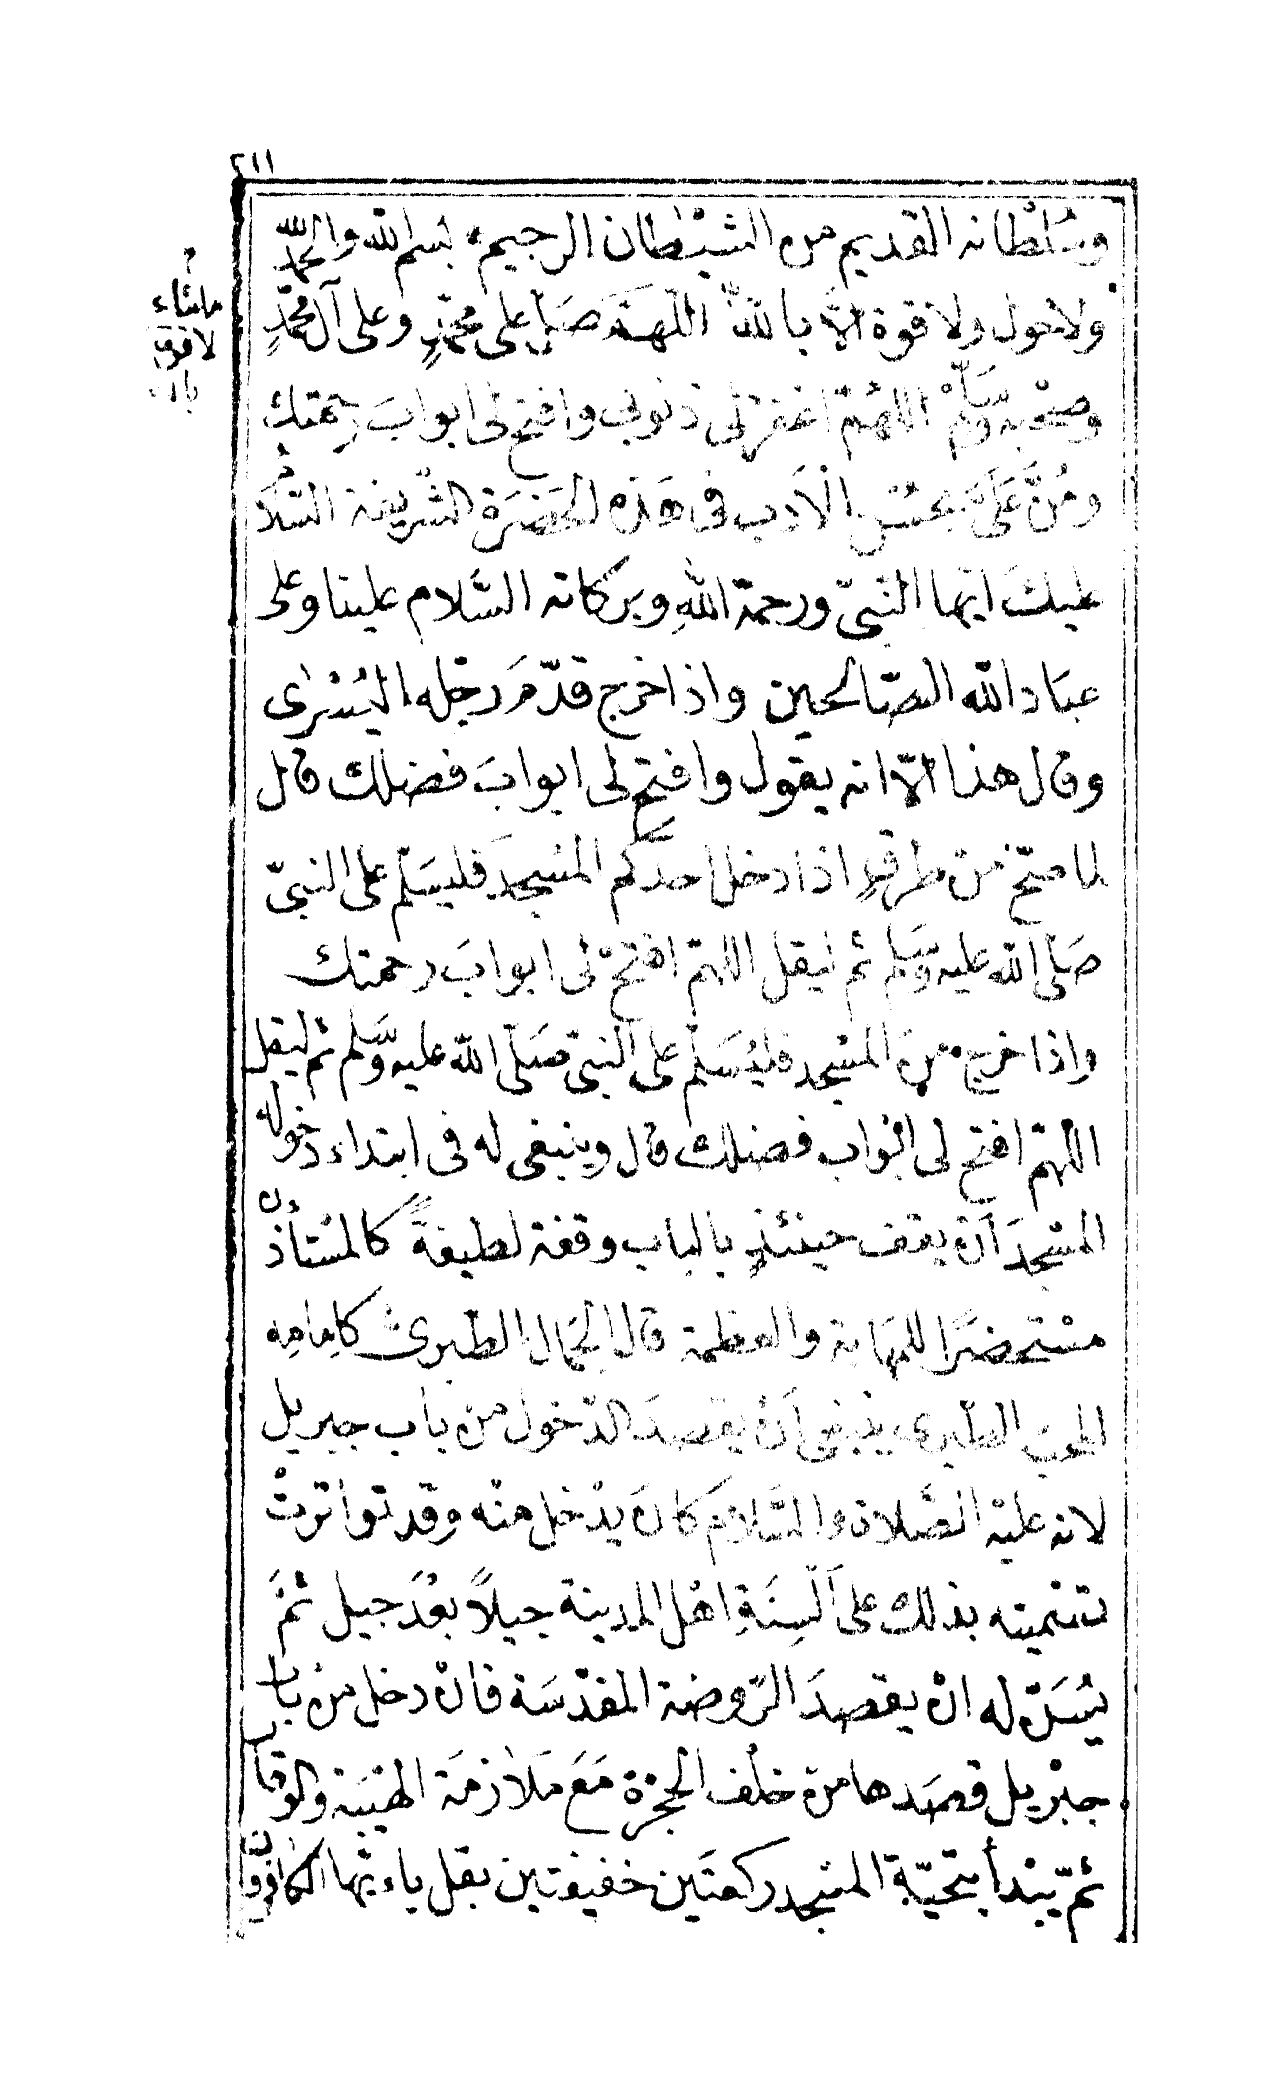 ٢١١
وسُلْطانه القديم من الشيْطان الرجيم بسم الله والحمد لله
ما شاء
لا قوة
بالله
ولا حول ولا قوة الّا بالله اللهمّ صَلّ على محمّدٍ وعلى آل محمّدٍ
وصَحْبه وسَلّمْ اللهُمّ اغفر لى ذنوبى وافتح لى ابوابَ رحمتك
ومُنَّ عَلَىَّ بحُسْن الْاَدب فى هَذه الحَضرَة الشّريفة السّلَامُ
عليكَ ايّها النّبىّ ورحمة اللهِ وبركاته السَّلام علينا وعلى
عبَاد الله الصّالحين واذا خرج قدّمَ رجْله اليُسْرٰى
وقال هذا الّا انه يقول وافتح لى ابوابَ فضلك قال
لما صحّ من طرقٍ اذا دخل احدكم المسجدَ فليسَلّم على النبىّ
صَلّى الله عليه وسَلم ثم ليقل اللهمّ افتحْ لى ابوابَ رحمتك
واِذا خرج منَ المسْجد فليُسَلّم على النبىّ صَلّى الله عليه وسَّلم ثمّ ليقل
اللهمّ افتح لى ابْواب فضلك قال وينبغى له فى ابتداء دخوله
المسْجدَ اَنْ يقف حينئذٍ بالباب وقفة لطيفةً كالمسْتأذن
مسْتحضرًا للمهَابة والعظمة قال الجمَال الطّبرىّ كاِمامِه
المحبّ الطّبرى ينبغى اَنْ يقصدَ الدّخول من باب جبريل
لانه عليْه الصَّلاة والسَّلامَ كانَ يدْخل منْه وقد تواترتْ
تسْميته بذلك على اَلْسِنَةِ اهْل المدينة جيلاً بعْدَ جيل ثمَّ
يُسَنّ له انْ يقصدَ الرّوضة المقدّسَة فانْ دخل من باب
جبْريل قصَدها من خلْف الحجْرة مَعَ مَلَازمَة الهيْبَة والوقار
ثمّ يبْدأ بتحيّة المسْجد ركعتَين خفيفتين بقل ياءيّها الكٰافرُون و